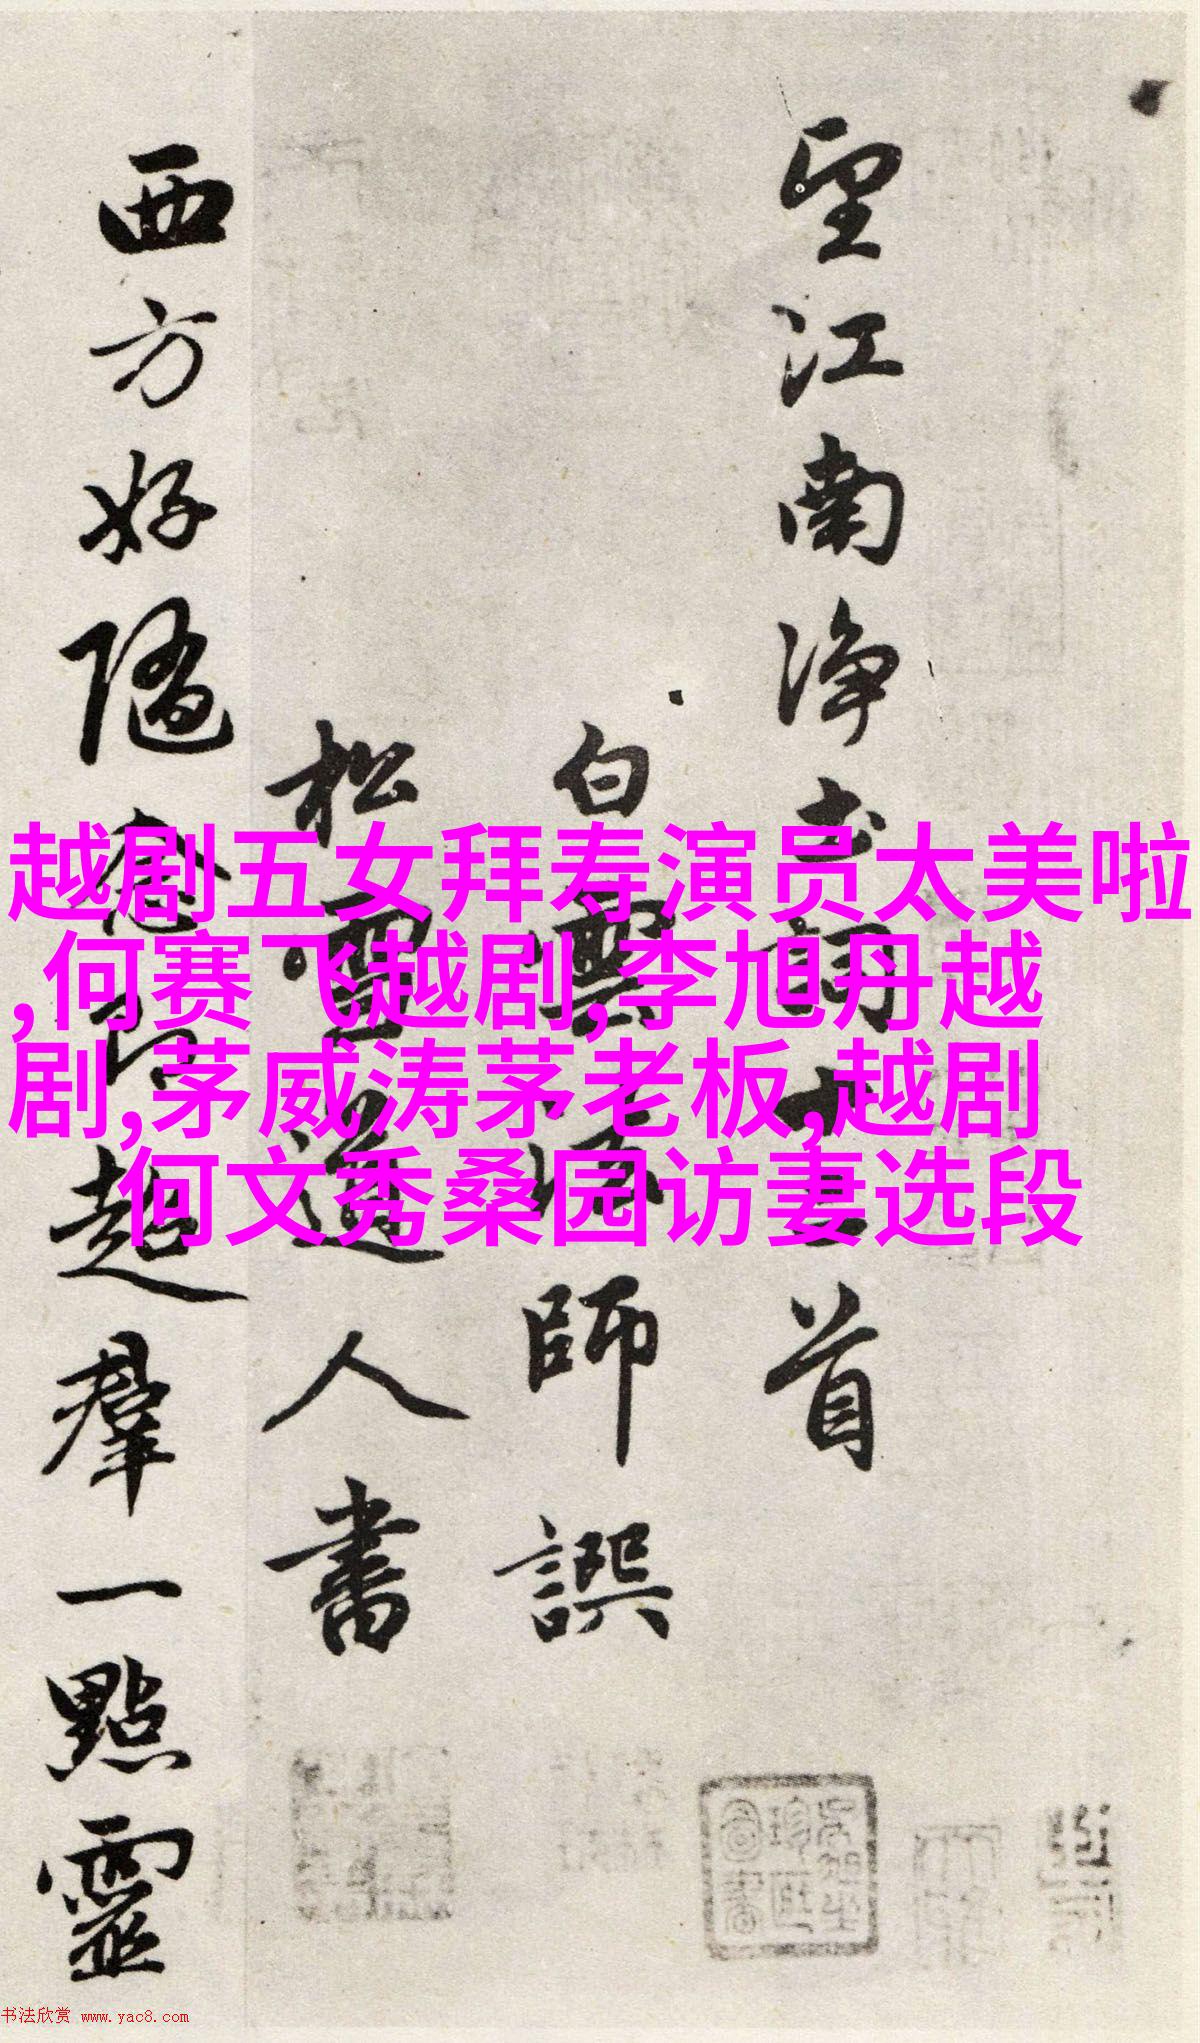 越剧五女拜寿演员太美啦
,何赛飞越剧,李旭丹越
剧,茅威涛茅老板,越剧
何文秀桑园访妻选段
望江南淨土詞十二首
白雲法師譔
松雪道人書
西方好隨念即超羣一點靈
书法欣赏 www.yac8.com